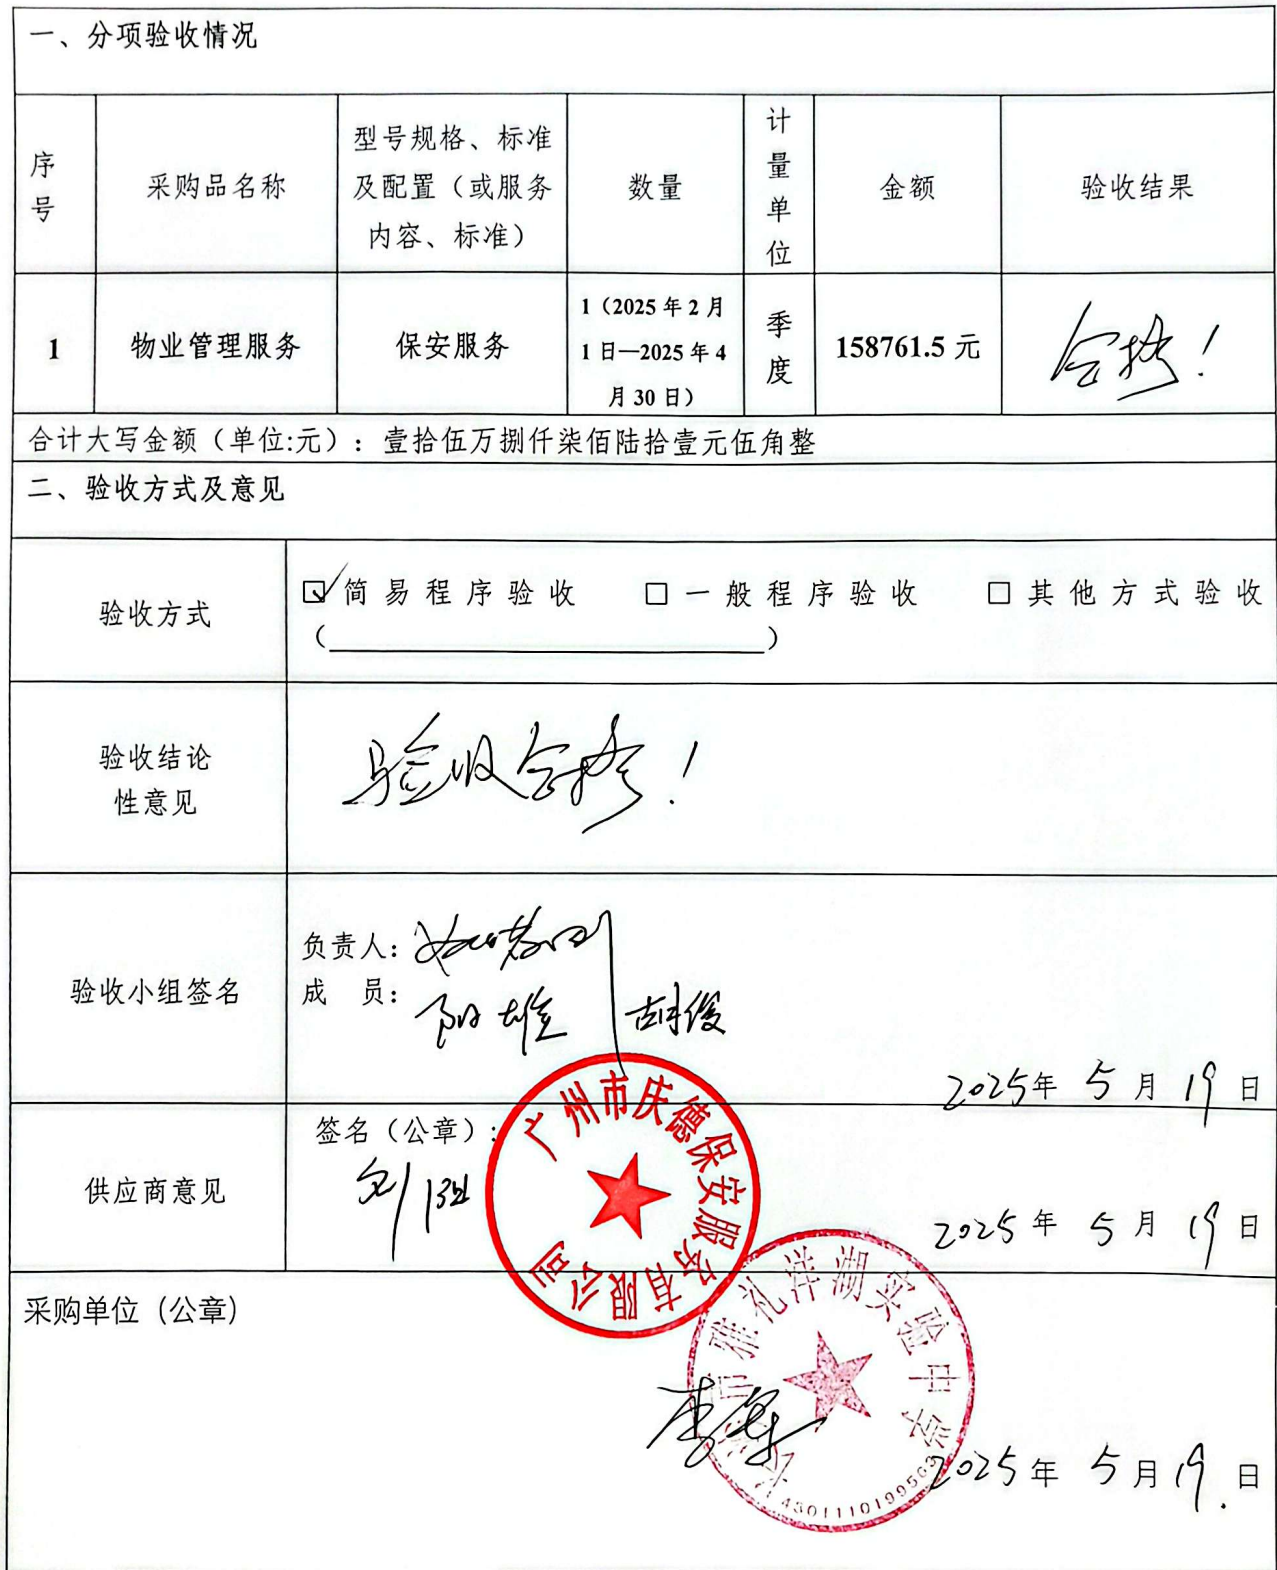 一、分项验收情况
序号 采购品名称 型号规格、标准及配置（或服务内容、标准） 数量 计量单位 金额 验收结果
1 物业管理服务 保安服务 1（2025年2月1日—2025年4月30日） 季度 158761.5元 合格！
合计大写金额（单位:元）：壹拾伍万捌仟柒佰陆拾壹元伍角整
二、验收方式及意见
验收方式 ☑简易程序验收 □一般程序验收 □其他方式验收
（＿＿＿＿＿＿＿＿＿＿）
验收结论性意见 验收合格！
验收小组签名 负责人：
成 员： 阳雄 胡俊
2025年 5月 19日
供应商意见 签名（公章）：
广州市庆德保安服务有限公司
2025年 5月 19日
采购单位（公章）
雅礼洋湖实验中学
2025年 5月 19日